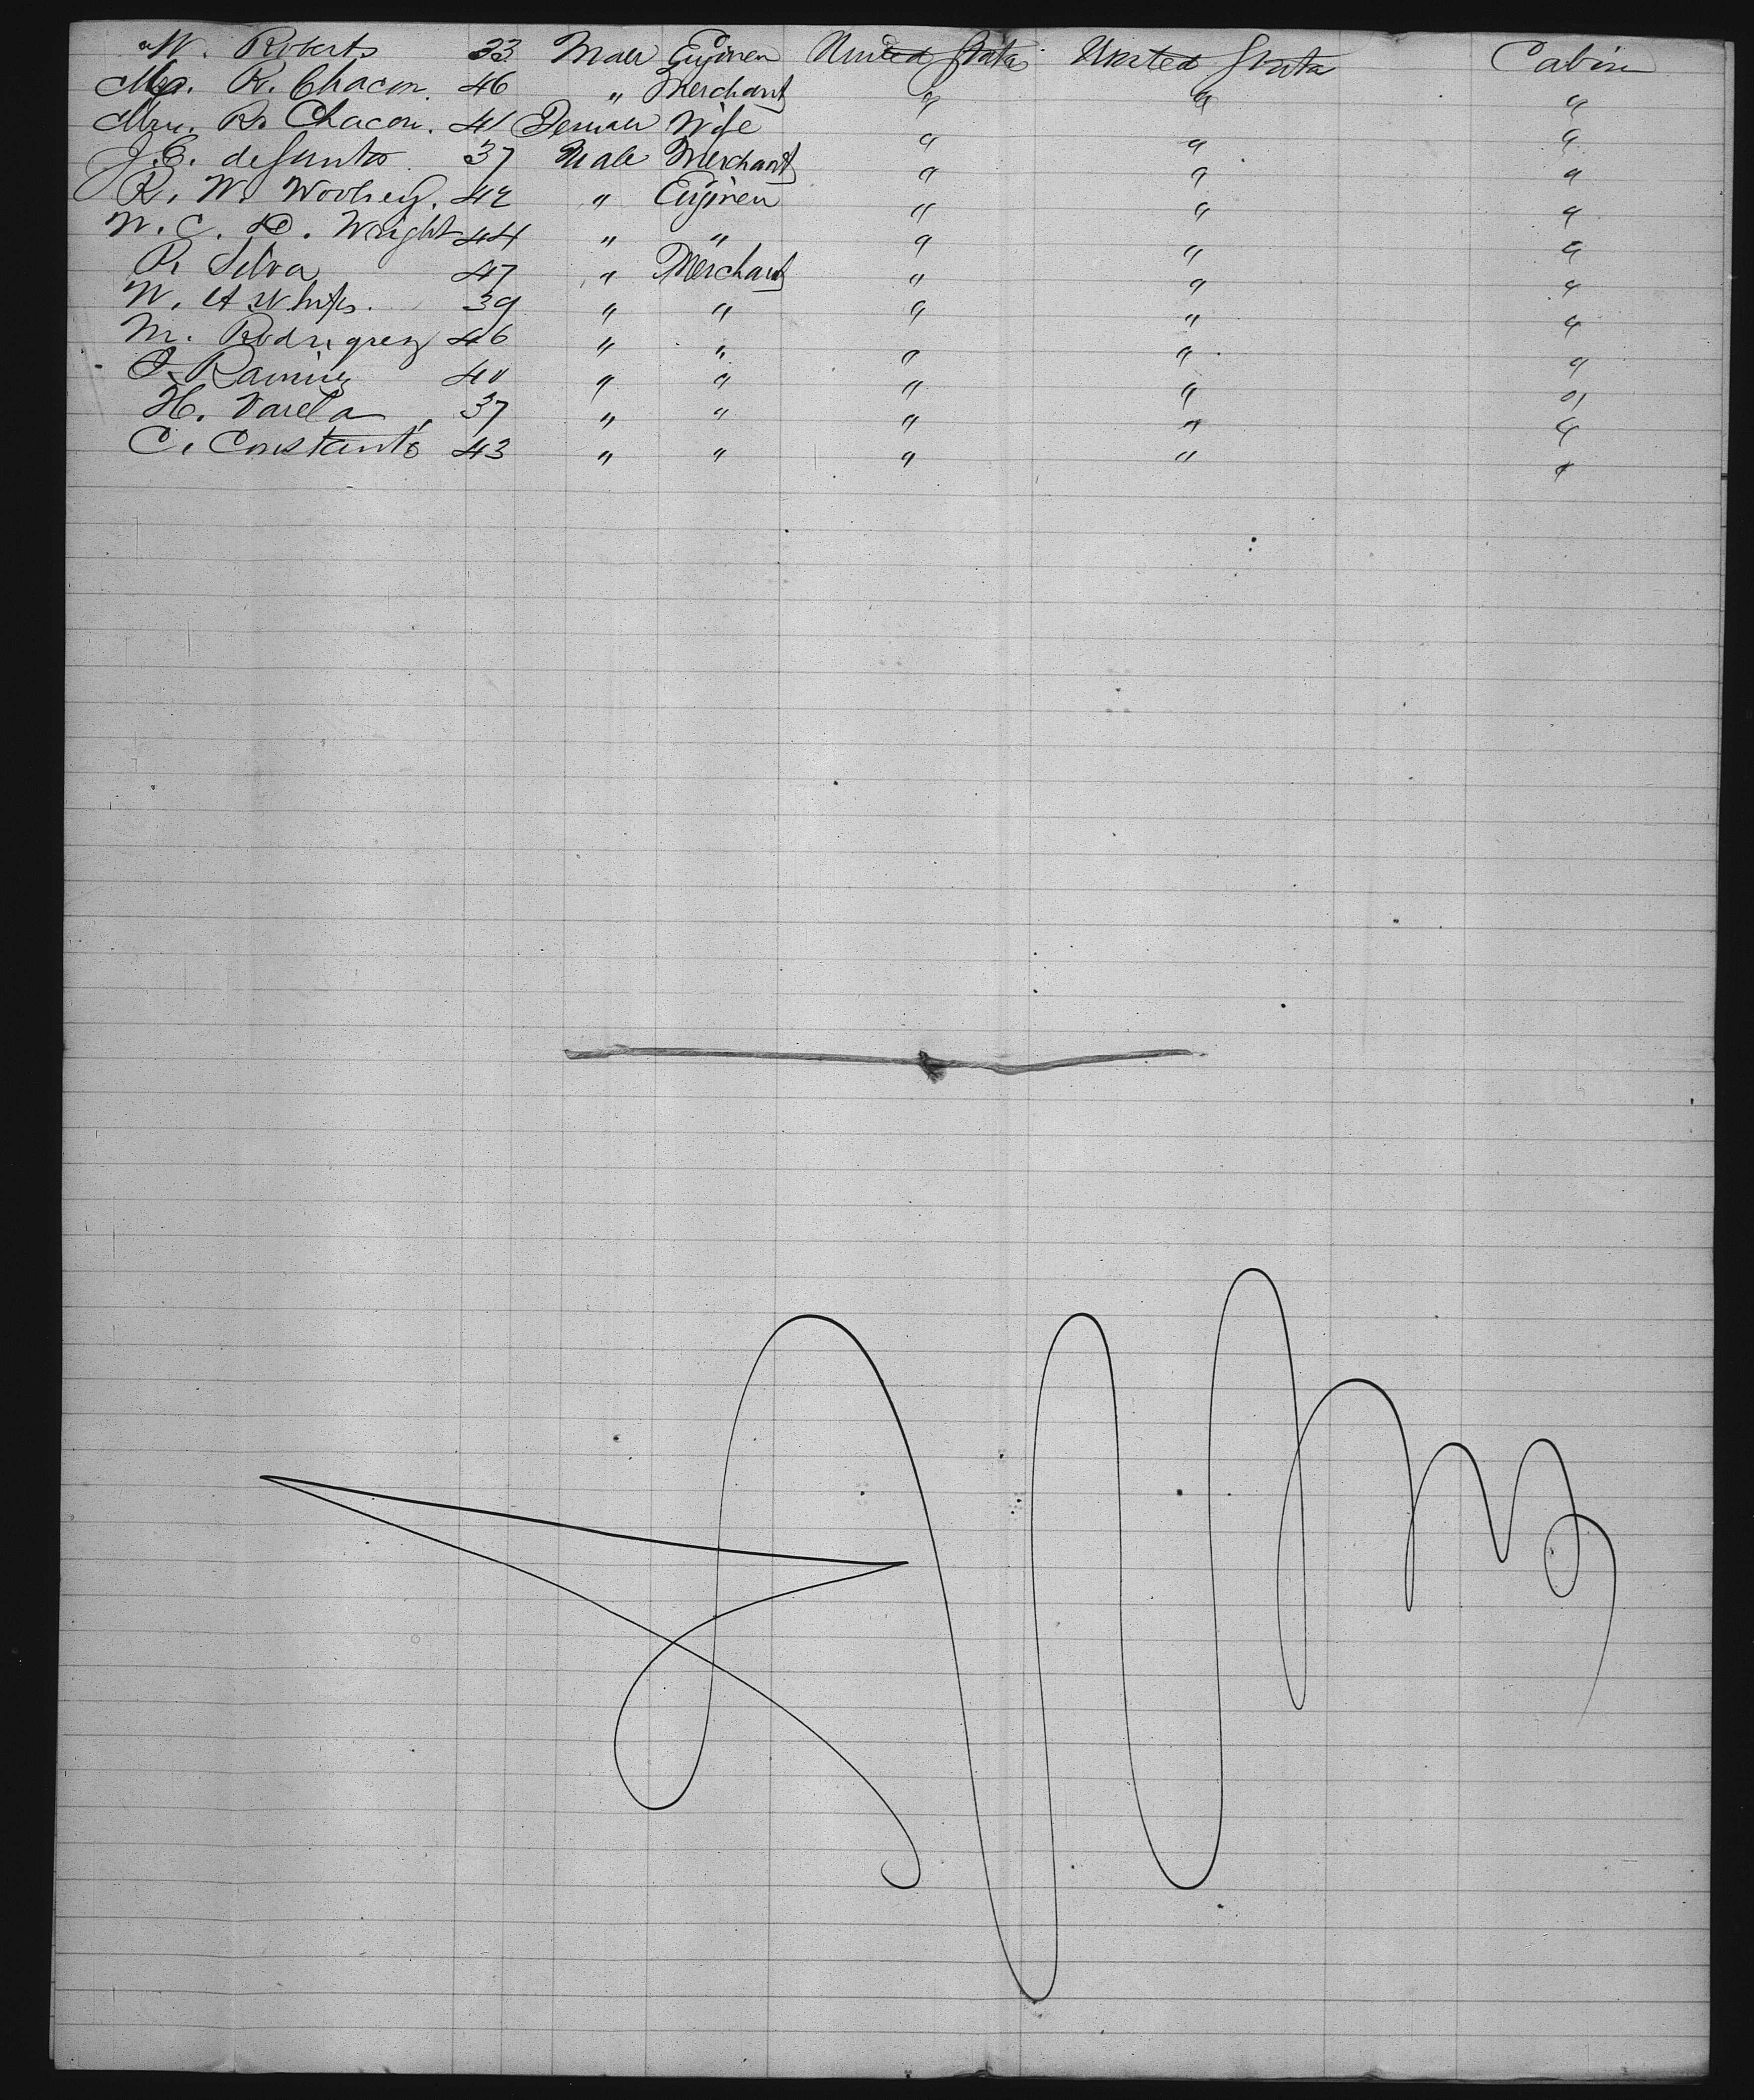 W. Roberts 33 Male Engineer United States United States Cabin
Mr. R. Chacon. 46 " Merchant " " "
Mrs. R. Chacon. 41 Female Wife " " "
J. C. de Santos 37 Male Merchant " " "
R. W. Woolsey. 42 " Engineer " " "
W. C. D. Wright 44 " " " " "
R. Silva 47 " Merchant " " "
W. A 39 " " " " "
M. Rodriguez 46 " " " " "
Ramirez 40 " " " " "
H. Varela 37 " " " " "
C. Constanto 43 " " " " "